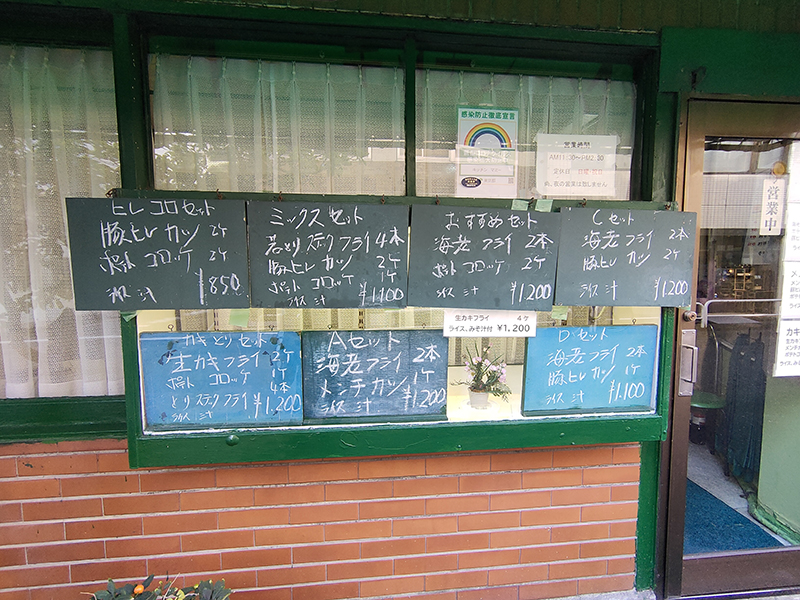 感染防止徹底宣言
営業時間
AM11:30〜PM2:30
営業中
ヒレコロセット
豚ヒレカツ 2ケ
ポテトコロッケ 2ケ
ライス 汁 ¥850
ミックスセット
若とりスティックフライ 4本
豚ヒレカツ 2ケ
ポテトコロッケ 1ケ
ライス 汁 ¥1.100
おすすめセット
海老フライ 2本
ポテトコロッケ 2ケ
ライス 汁 ¥1.200
Cセット
海老フライ 2本
豚ヒレカツ 2ケ
ライス 汁 ¥1.200
生カキフライ 4ケ
ライス、みそ汁付 ¥1,200
カキとりセット
生カキフライ 2ケ
ポテトコロッケ 1ケ
とりスティックフライ 4本
ライス 汁 ¥1.200
Aセット
海老フライ 2本
メンチカツ 1ケ
ライス 汁 ¥1.200
Dセット
海老フライ 2本
豚ヒレカツ 1ケ
ライス 汁 ¥1.100